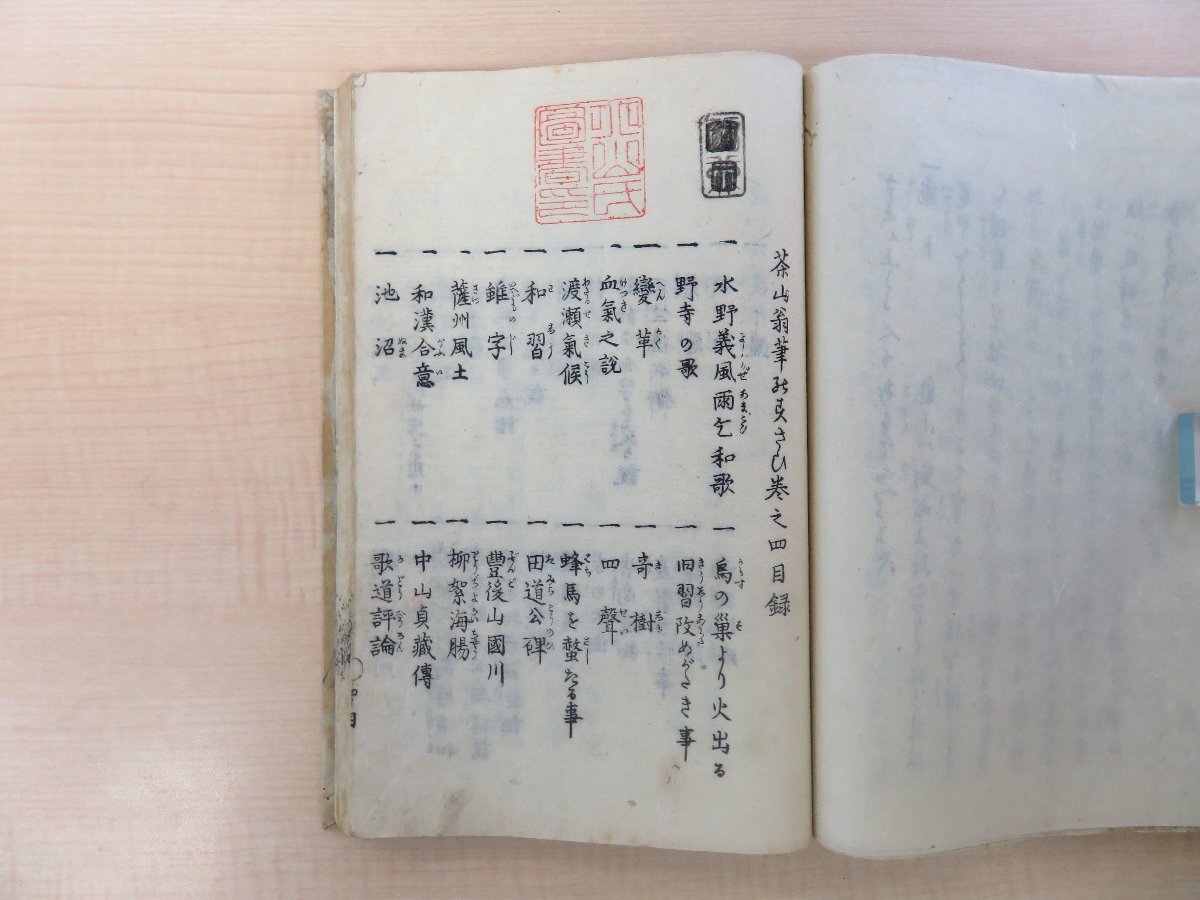 茶山翁筆のすさひ巻之四目録
一 水野義風雨乞和歌
一 烏の巣より火出る
一 野寺の歌
一 旧習改めがたき事
一 變革
一 奇樹
一 血氣之説
一 四聲
一 渡瀬氣候
一 蜂馬を螫たる事
一 和習
一 田道公碑
一 雖字
一 豐後山國川
一 薩州風土
一 柳絮海腸
一 和漢合意
一 中山貞藏傳
一 池沼
一 歌道評論